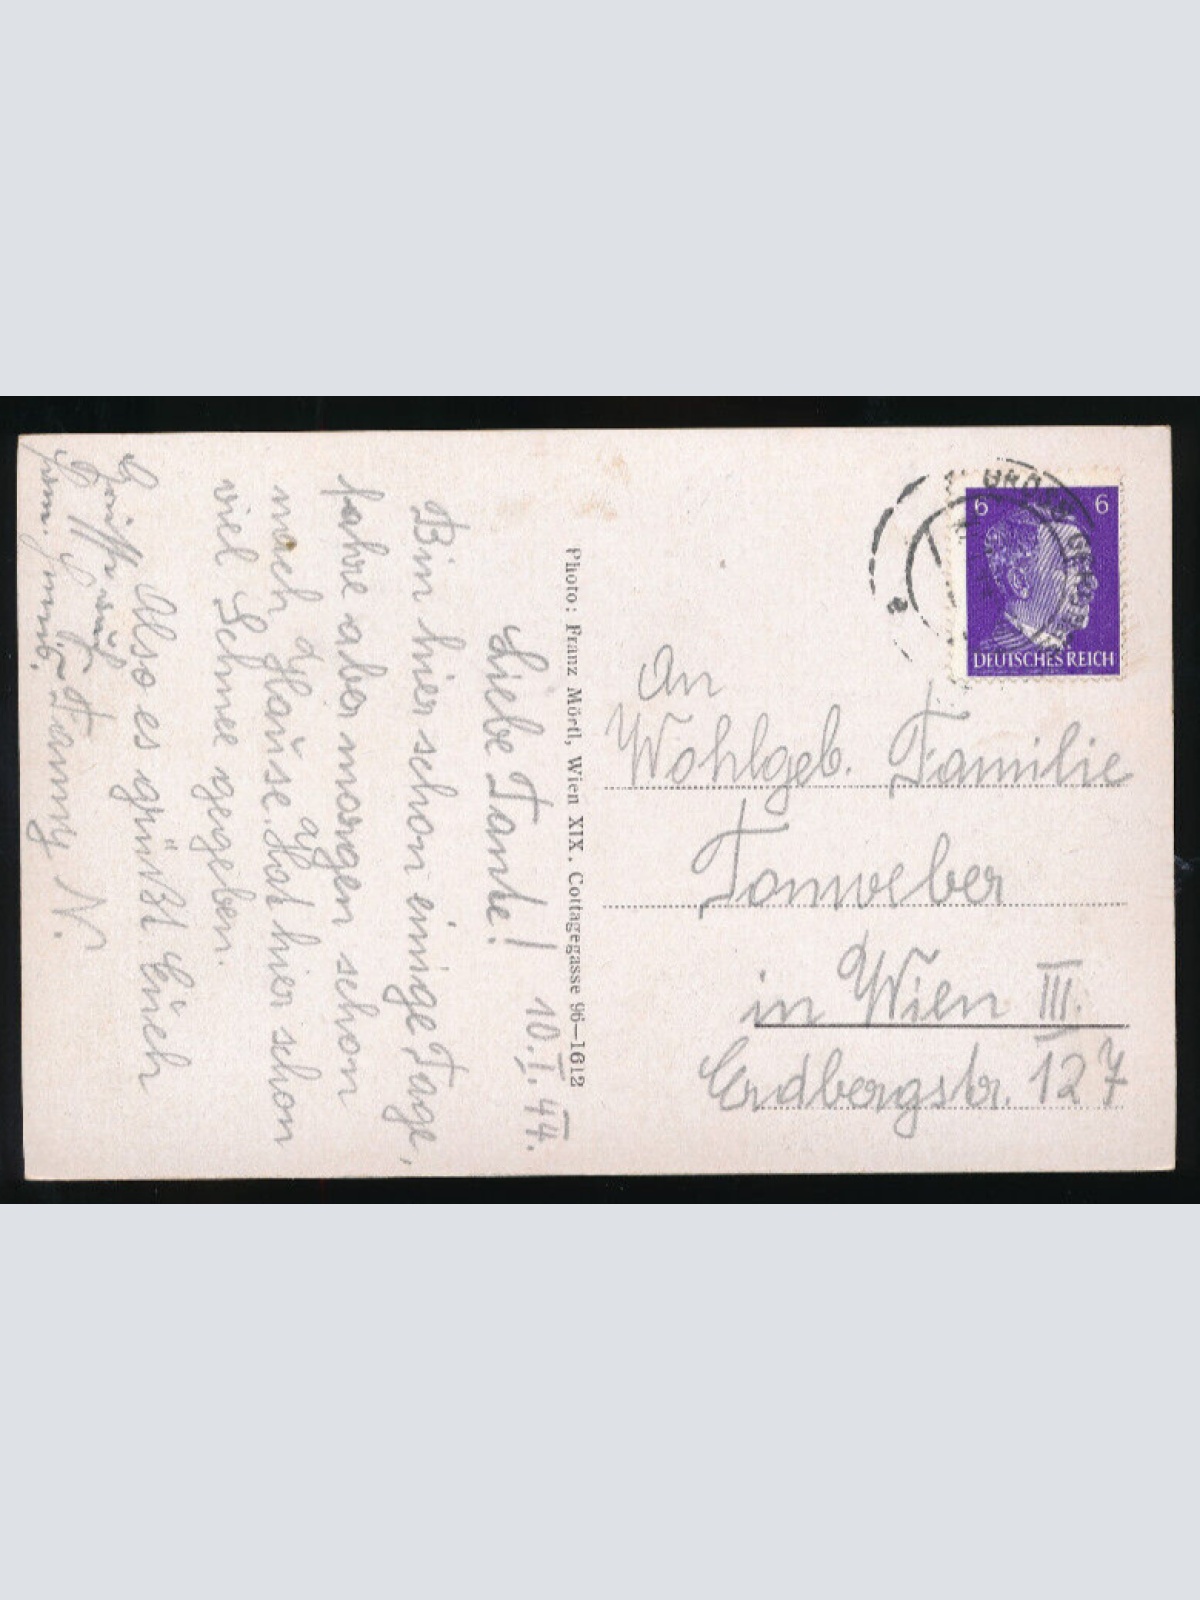 10.I.44.
Liebe Tante!
Bin hier schon einige Tage,
fahre aber morgen schon
nach Hause. Hat hier schon
viel Schnee gegeben.
Also es grüßt Euch
Fanny N.
Grüsse auch
Photo: Franz Mörtl, Wien XIX. Cottagegasse 96—1612
6 6
DEUTSCHES REICH
a
An
Wohlgeb. Familie
Tomweber
in Wien III.
Erdbergstr. 127